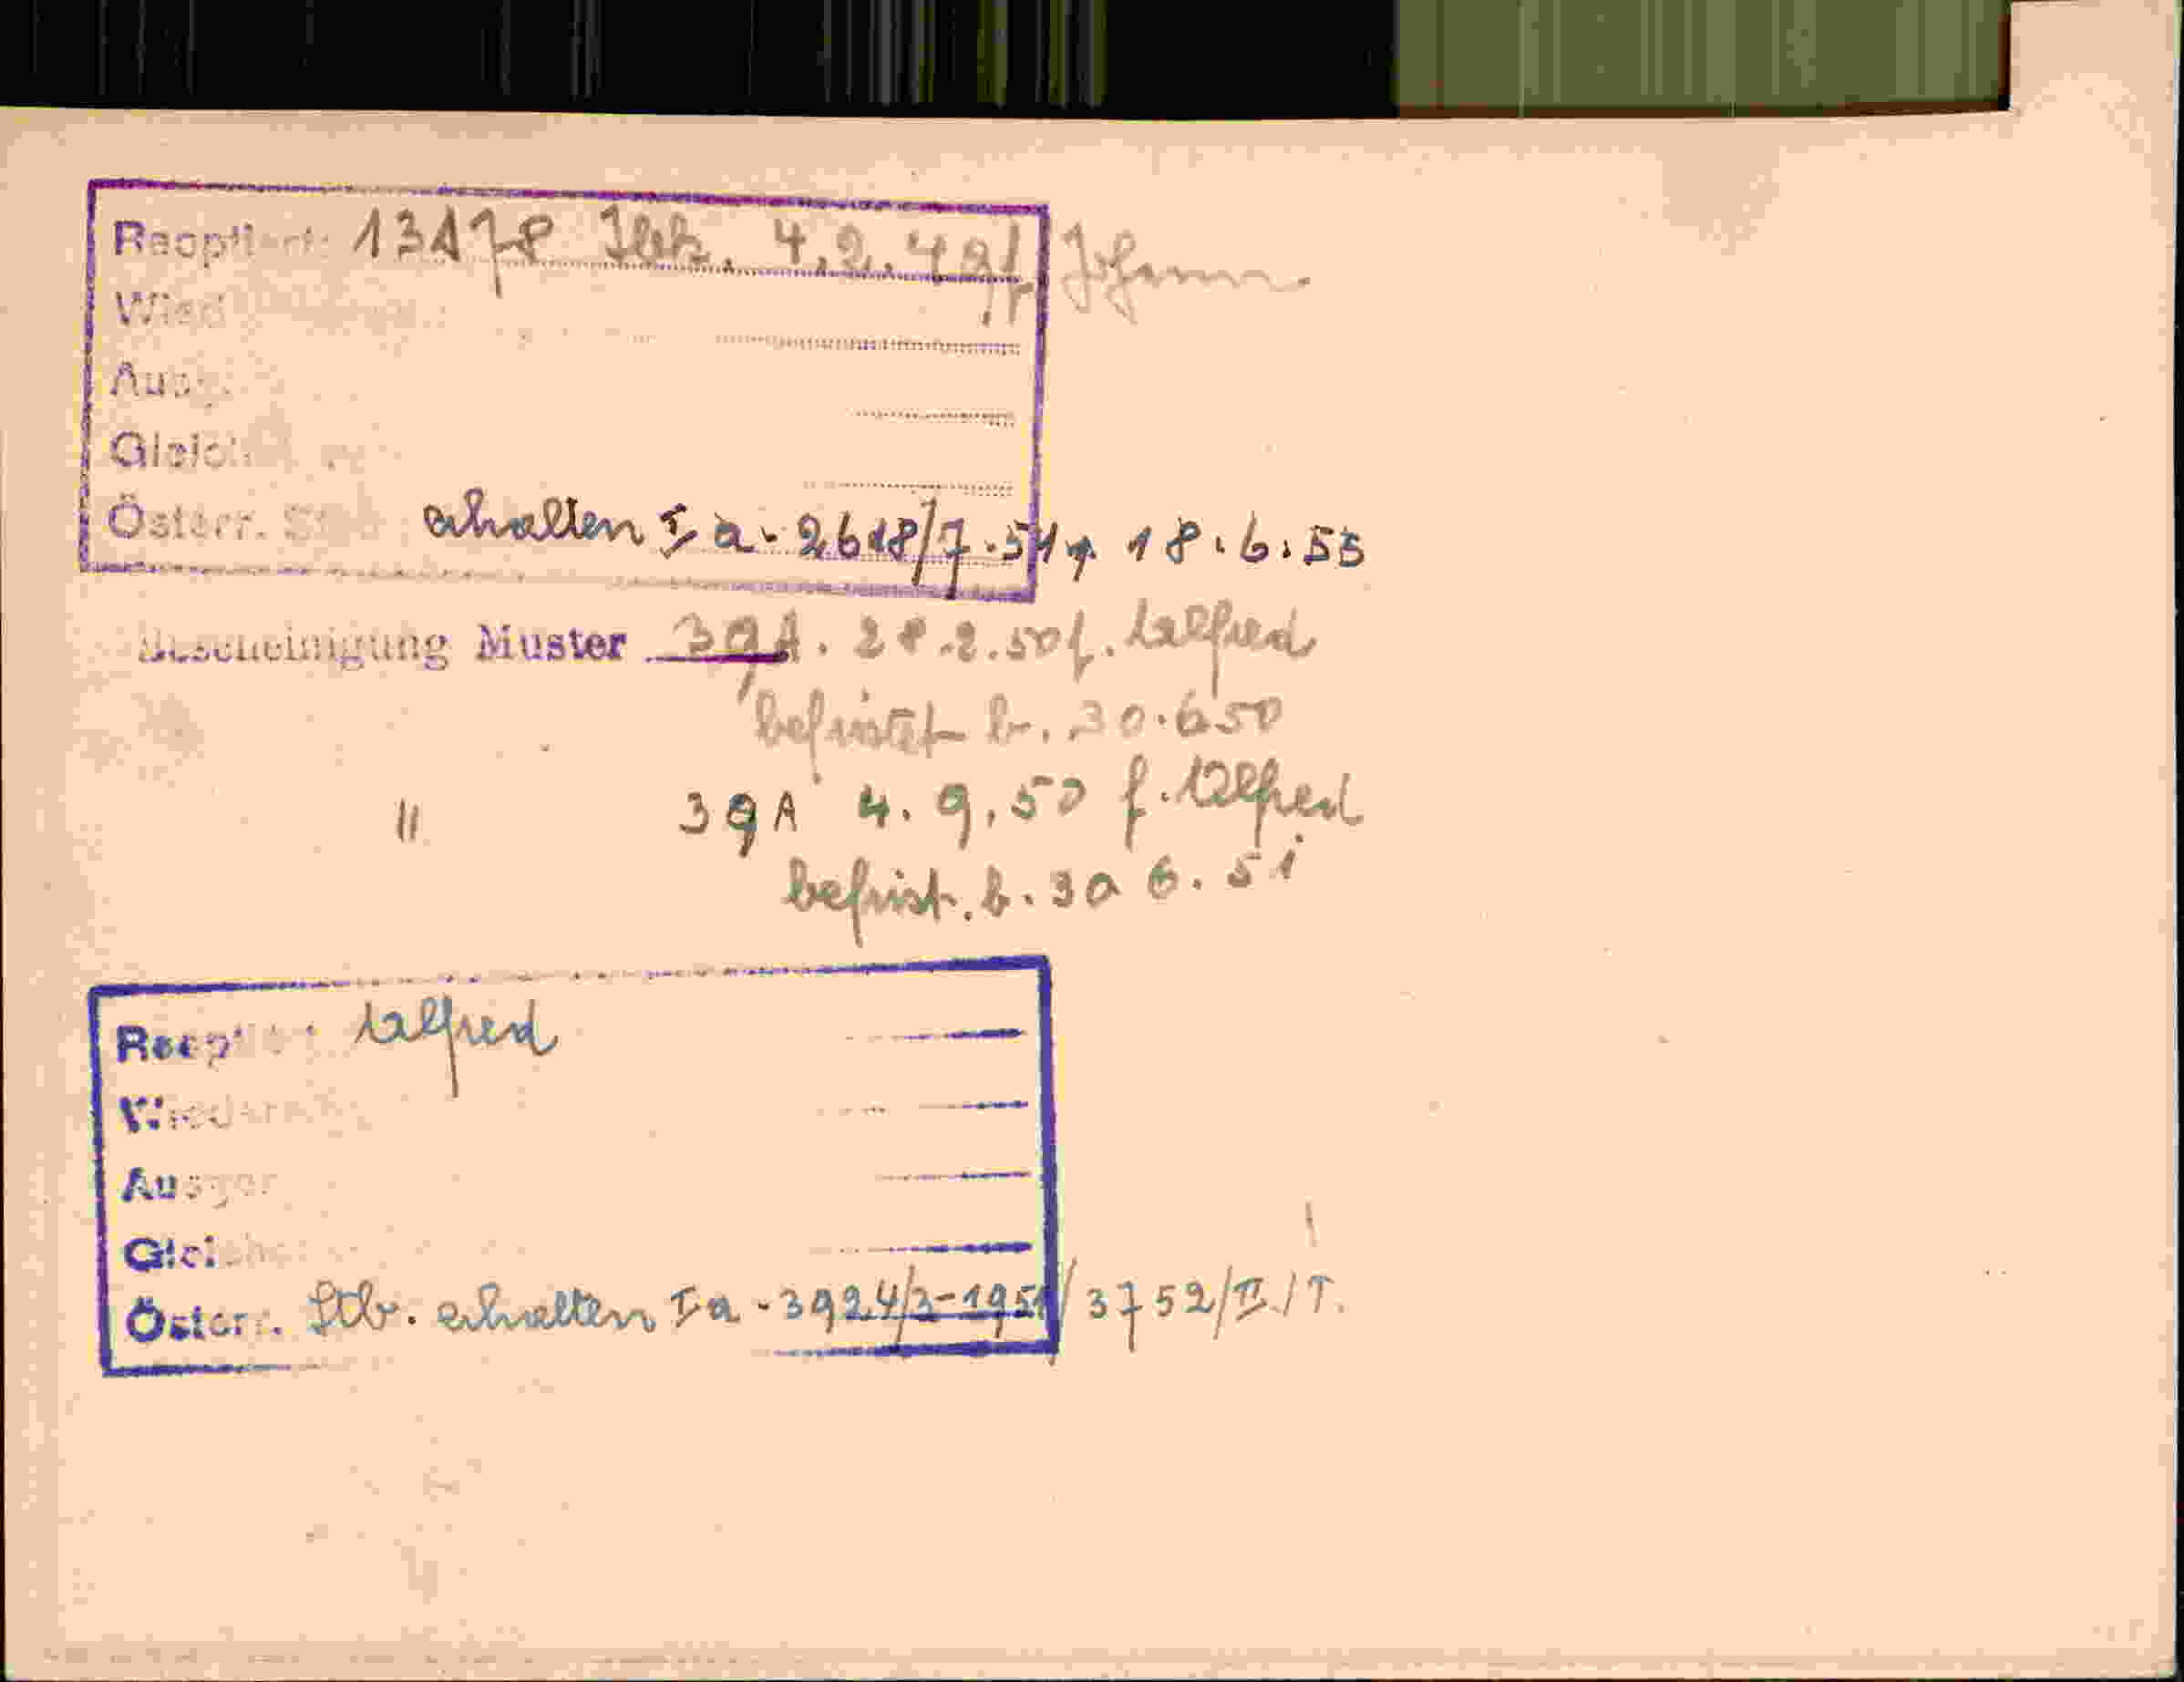 Reoptiert: 13178 4.2.49 f. Johann
Wied
Ausg.
Gleich
Österr. Stb erhalten I a - 2618/7-54 18.6.55
Bescheinigung Muster 39A. 28.2.50 f. Alfred
befristet b. 30.6 50
" 39A 4.9.50 f. Alfred
befrist. b. 30 6.51
Reopt Alfred
Wieder
Ausge
Gleich
Österr. Stb. erhalten I a - 3924/3-1951/3752/II/T.